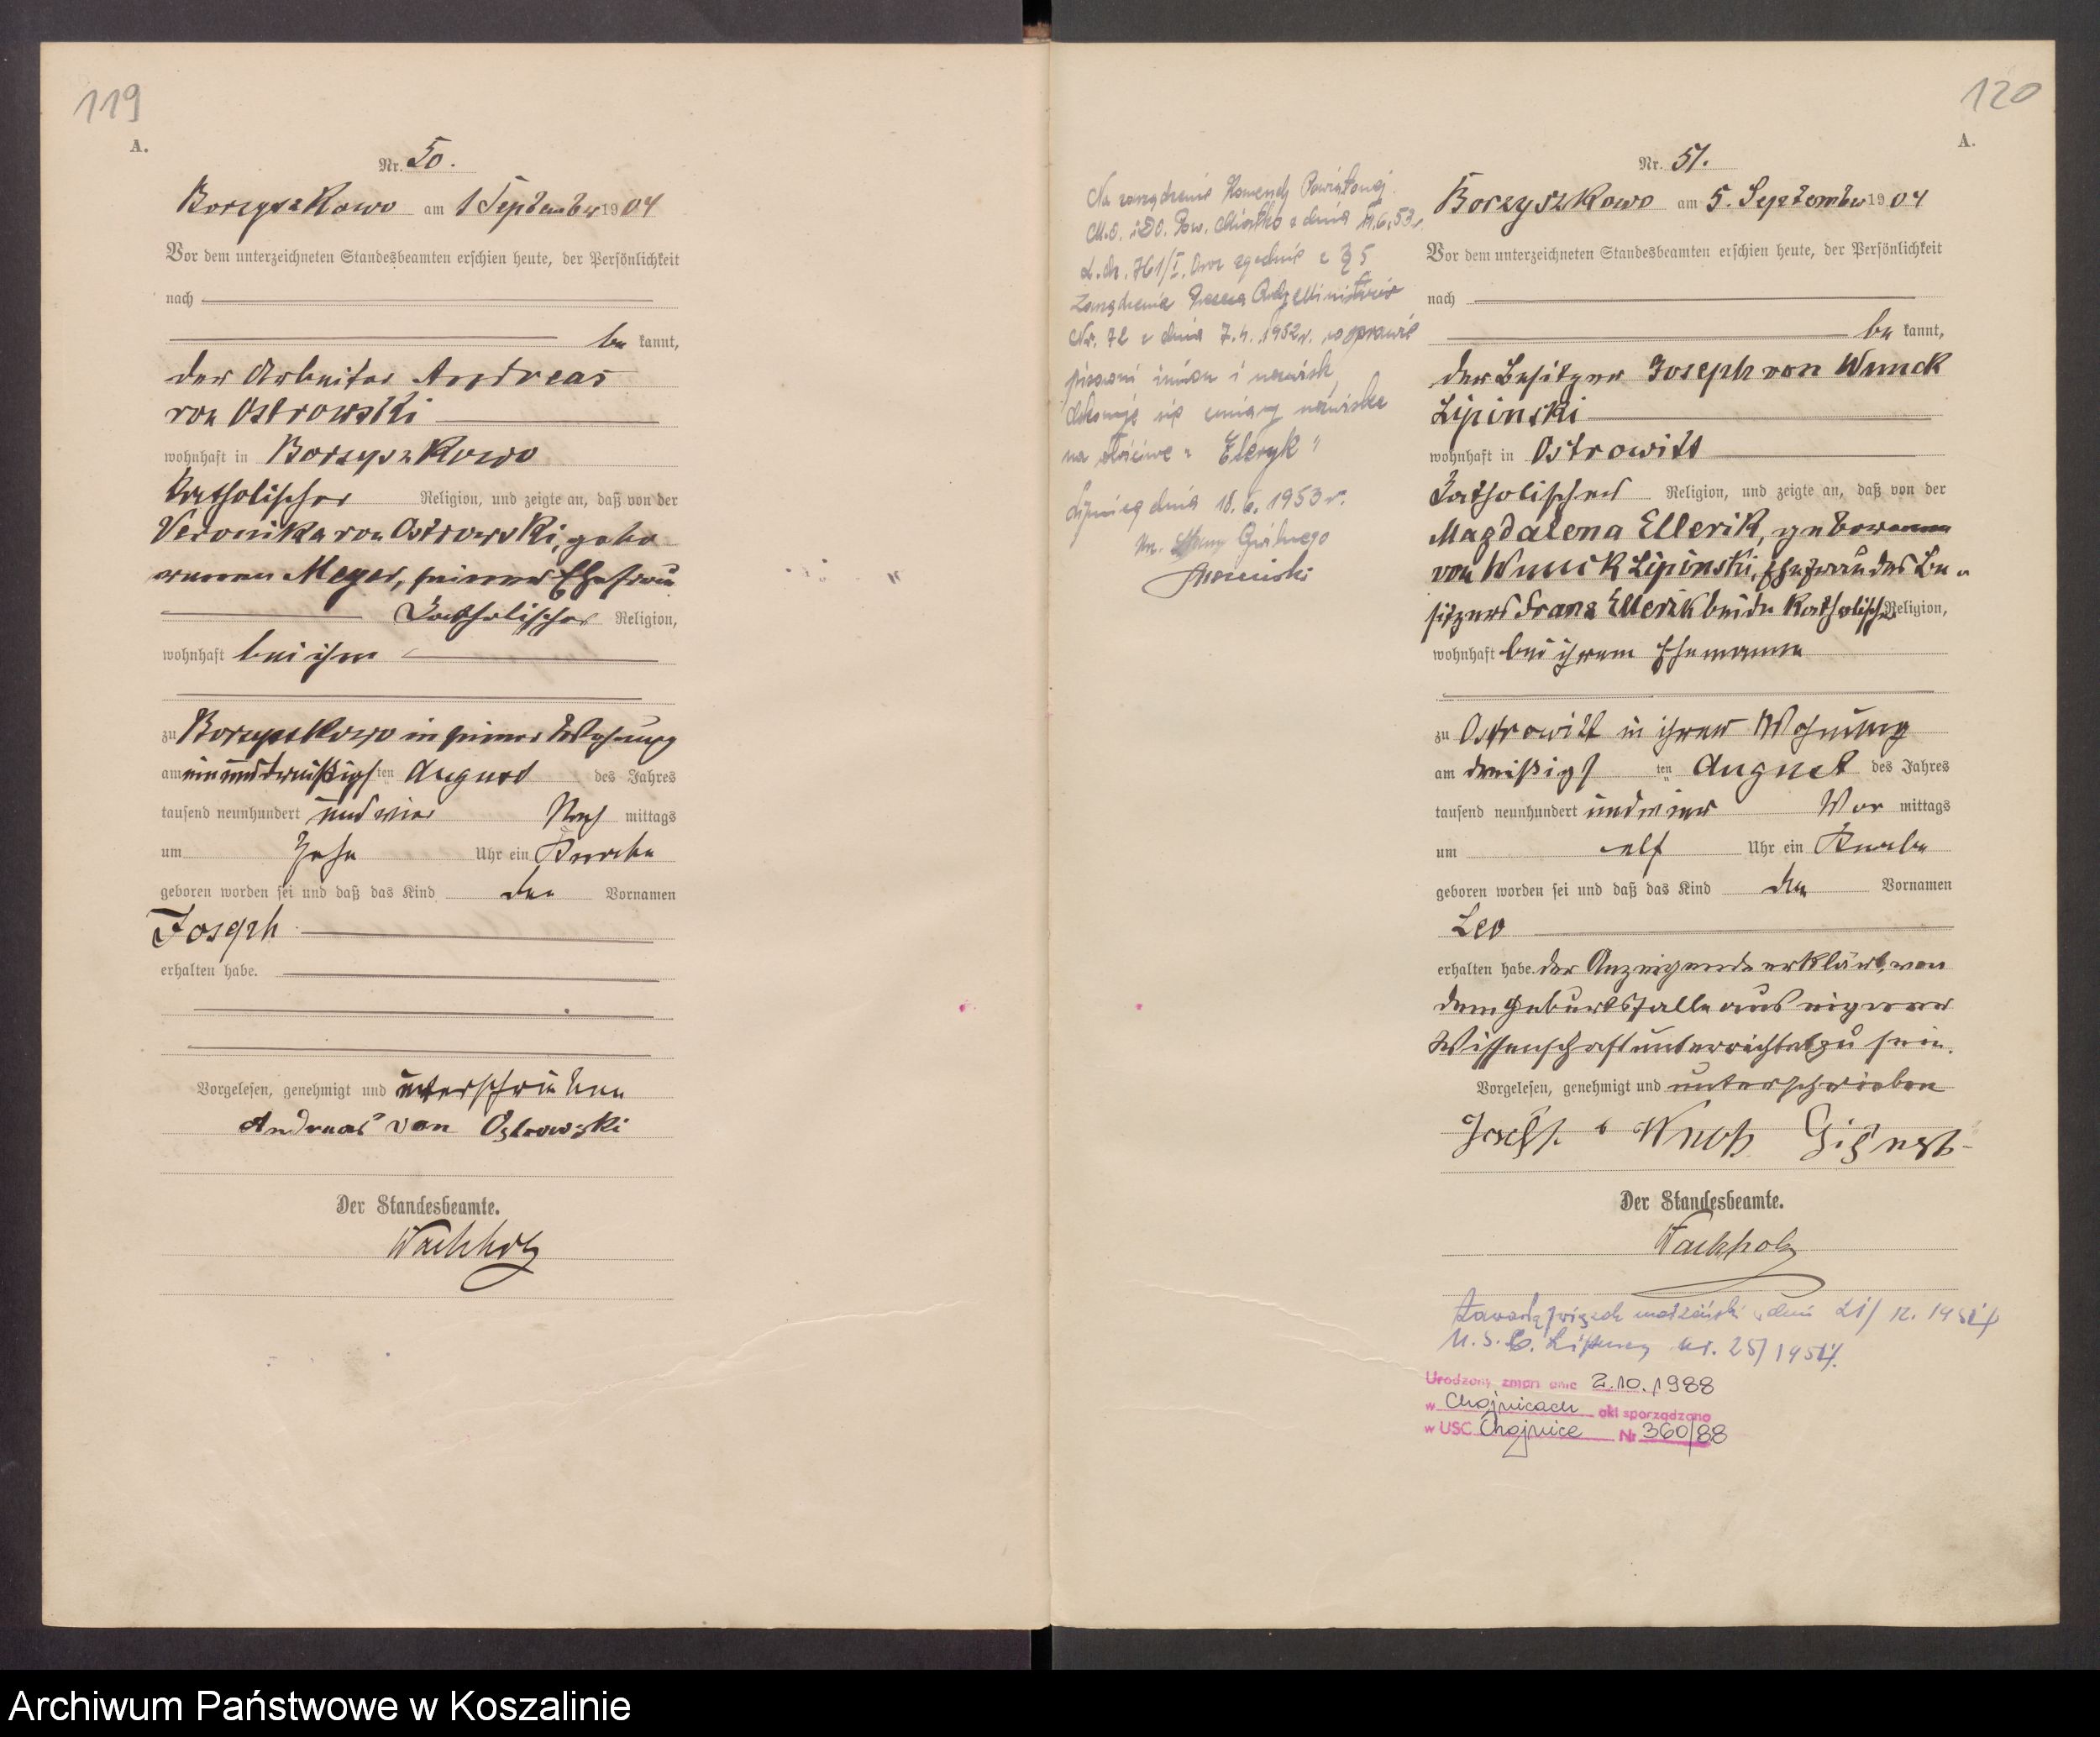 119
A.
Nr. 50.
Borzyszkowo am 1 September 1904
Vor dem unterzeichneten Standesbeamten erschien heute, der Persönlichkeit
nach
be kannt,
der Arbeiter Andreas
von Ostrowski
wohnhaft in Borzyszkowo
katholischer Religion, und zeigte an, daß von der
Veronika von Ostrowski, gebo
renen Meyer, seiner Ehefrau
katholischer Religion,
wohnhaft bei ihm
zu Borzyszkowo in seiner Wohnung
am einunddreißigsten August des Jahres
tausend neunhundert und vier Nach mittags
um Uhr ein Knabe
geboren worden sei und daß das Kind den Vornamen
Joseph
erhalten habe.
Vorgelesen, genehmigt und unterschrieben
Andreas von Ostrowski
Der Standesbeamte.
Wachholz
120
A.
Nr. 51.
Borzyszkowo am 5. September 1904
Vor dem unterzeichneten Standesbeamten erschien heute, der Persönlichkeit
nach
be kannt,
der Besitzer Joseph von Wnuck
Lipinski
wohnhaft in Ostrowitt
katholischer Religion, und zeigte an, daß von der
Magdalena Ellerik, geborenen
von Wnuck Lipinski, Ehefrau des Be
sitzers Franz Ellerik beide katholischer Religion,
wohnhaft bei ihrem Ehemanne
zu Ostrowitt in ihrer Wohnung
am dreißigsten August des Jahres
tausend neunhundert und vier Vor mittags
um elf Uhr ein Knabe
geboren worden sei und daß das Kind den Vornamen
Leo
erhalten habe. der Anzeigende erklärt, von
dem Geburtsfalle aus eigener
Wissenschaft unterrichtet zu sein.
Vorgelesen, genehmigt und unterschrieben
Der Standesbeamte.
Wachholz
Na zarządzenie Komendy Powiatowej
M.O. Pow. Miastko z dnia
zgodnie z § 5
Zarządzenia Ministrów
Nr. 72 z dnia 7.4.1952r. w sprawie
pisowni imion i nazwisk
dokonuje się zmiany nazwiska
na właściwe "Eleryk"
Lipnica dnia 18.6.1953r.
związek małżeński dnia
U.S.C. Lipnicy nr. 25/
Urodzony zmarł dnia 2.10.1988
w Chojnicach akt sporządzono
w USC Chojnice Nr 360/88
Archiwum Państwowe w Koszalinie